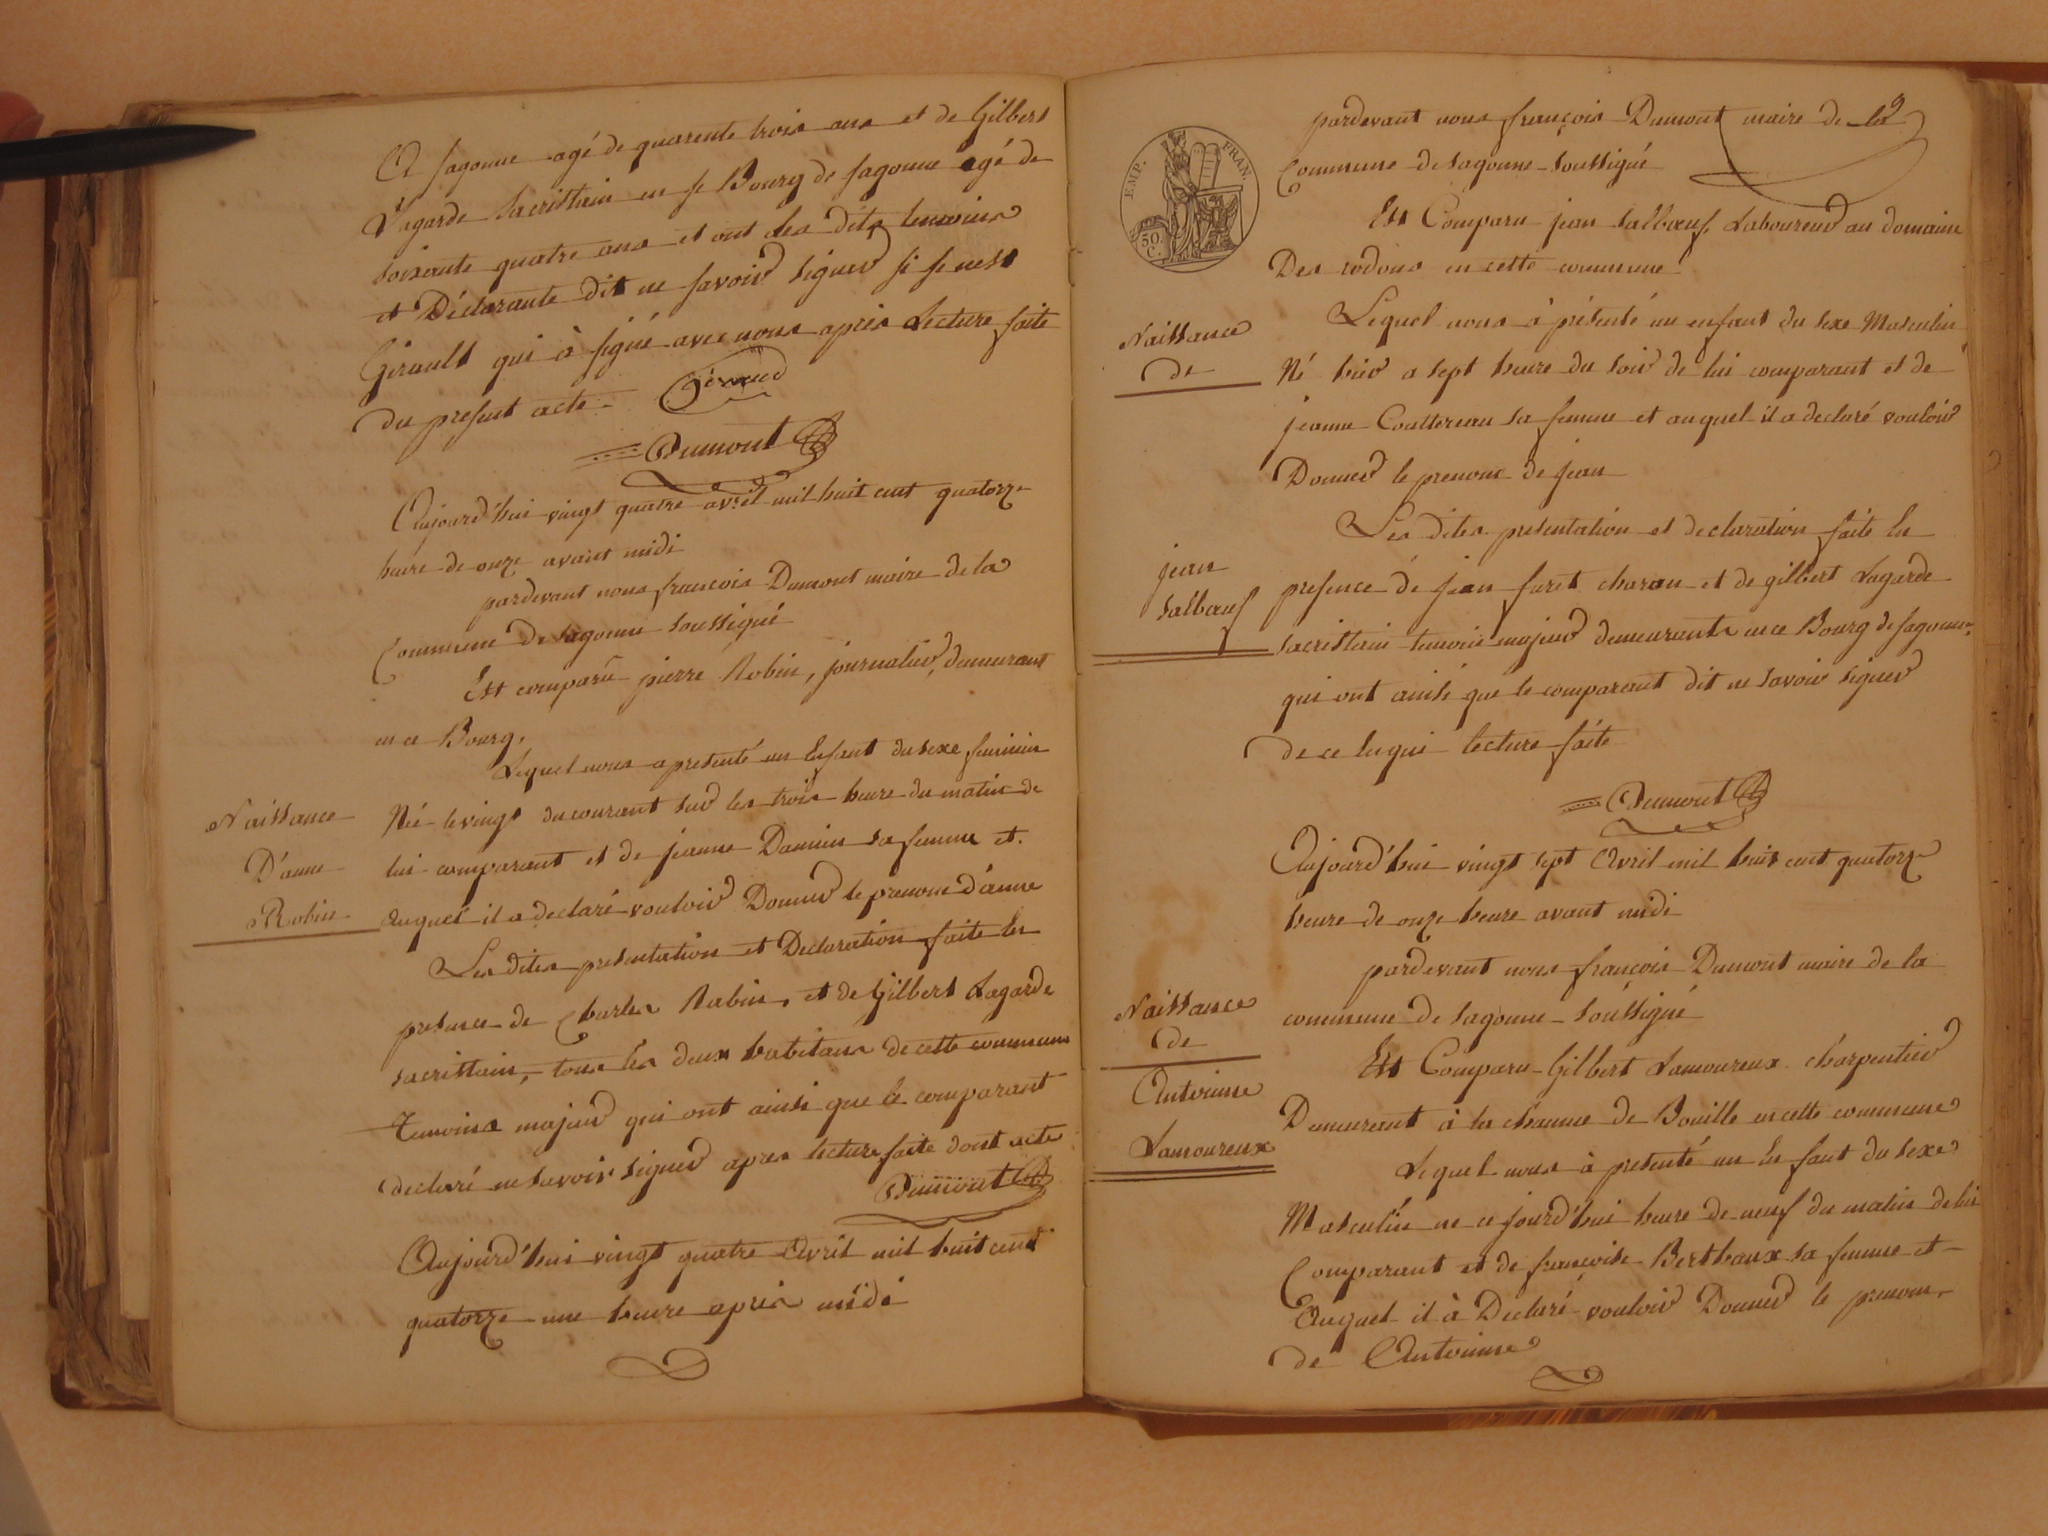 Et sagonne agé de quarente trois ans et de Gilbert
Lagarde sacristain en se Bourg de sagonne agé de
soixante quatre ans et ont les dits temoins
et Déclarante dit ne savoir signer si se nest
Girault qui à signé avec nous après Lecture faite
du present acte
Dumont
Aujourd'hui vingt quatre avril mil huit cent quatorze
heure de onze avant midi
pardevant nous francois Dumont maire de la
Commune de sagonne soussigné
Est comparu pierre Robin, journalier, demeurant
en ce Bourg,
Lequel nous a presenté un Enfant du sexe feminin
Naissance
D'anne
Robin
Né le vingt du courant sur les trois heure du matin de
lui comparant et de jeanne Damin sa femme et
auquel il a declaré vouloir Donner le prenom d'anne
Les dites presentation et Declaration faite En
presence de Charles Rabin, et de Gilbert Lagarde
sacristain, tous les deux habitans de cette commune
Temoins majeur qui ont ainsi que le comparant
declaré ne savoir signer apres lecture faite dont acte
Dumont
Aujourd'hui vingt quatre Avril mil huit cent
quatorze une heure apres midi
EMP. FRAN.
50. C.
pardevant nous françois Dumont maire de la
Commune de sagonne soussigné
Est Comparu jean salbœuf Laboureur au domaine
Des rodons en cette commune
Lequel nous à présenté un enfant du sexe Masculin
Naissance
de
jean
salbœuf
Né hier a sept heure du soir de lui comparant et de
jeanne Couttereau sa femme et auquel il a declaré vouloir
Donner le prenom de jean
Les dites presentation et declaration faite En
presence de jean furet charon et de gilbert Lagarde
sacristain temoin majeur demeurants en ce Bourg de sagonne
qui ont ainsi que le comparant dit ne savoir signer
de ce Enqui lecture faite
Dumont
Aujourd'hui vingt sept Avril mil huit cent quatorze
heure de onze heure avant midi
pardevant nous françois Dumont maire de la
commune de sagonne soussigné
Naissance
de
Antoinne
Lamoureux
Est Comparu Gilbert Lamoureux charpentier
Demeurant à la chaume de Bouille en cette commune
Lequel nous à presenté un En fant du sexe
Masculin ne ce jourd'hui heure de neuf du matin de lui
Comparant et de françoise Berthaux sa femme et
Auquel il à Declaré vouloir Donner le prenom
de Antoinne